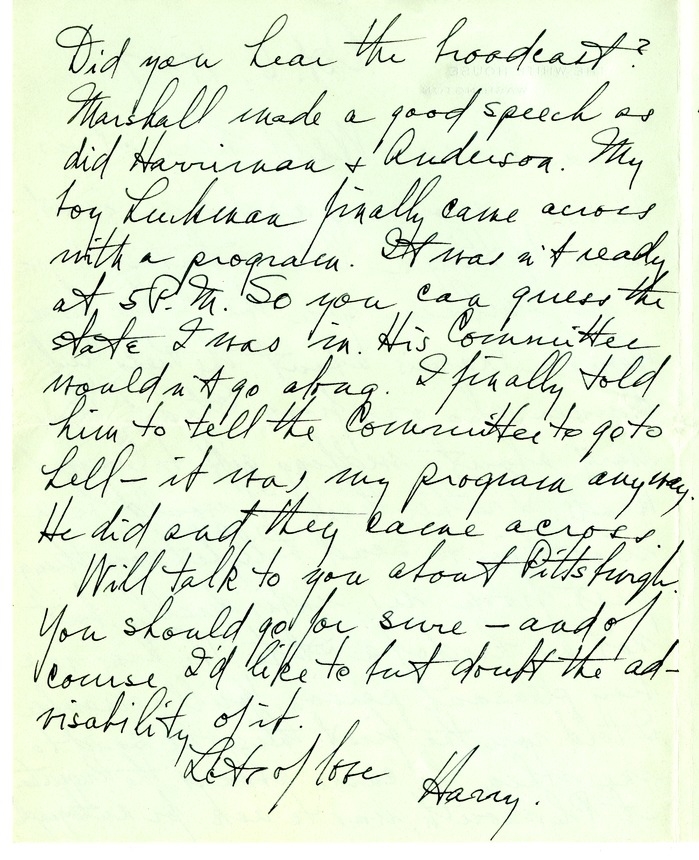 Did you hear the broadcast?
Marshall made a good speech as
did Harriman & Anderson. My
boy Luckman finally came across
with a program. It wasn't ready
at 5 P.M. So you can guess the
state I was in. His Committee
wouldn't go along. I finally told
him to tell the Committee to go to
hell – it was my program anyway.
He did and they came across.
Will talk to you about Pittsburgh.
You should go for sure – and of
course I'd like to but doubt the ad-
visability of it.
Lots of love
Harry.